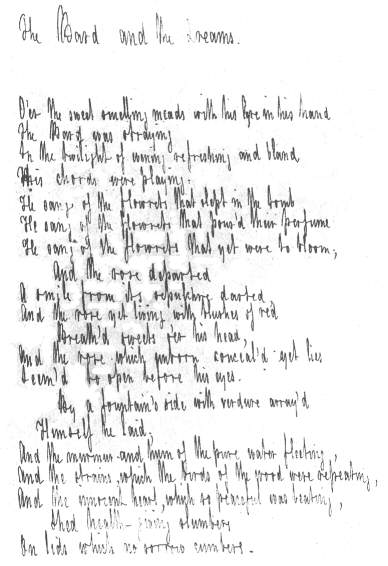 The Bard and the Dreams.
O'er the sweet smelling meads with his lyre in his hand
The Bard was straying
In the twilight of evening refreshing and bland
His chords were playing.
He sang of the flowrets that slept in the tomb
He sang of the flowrets that pour'd their perfume
He sang of the flowrets that yet were to bloom,
And the rose departed
A smile from its sepulchre darted
And the rose yet living with blushes of red
Breath'd sweets o'er his head,
And the rose which unborn conceal'd yet lies
Seem'd to open before his eyes.
By a fountain's side with verdure array'd
Himself he laid,
And the murmur and hum of the pure water fleeting,
And the strains, which the birds of the wood were repeating,
And the innocent heart, which so peaceful was beating,
Shed health-giving slumbers
On lids which no sorrow cumbers.